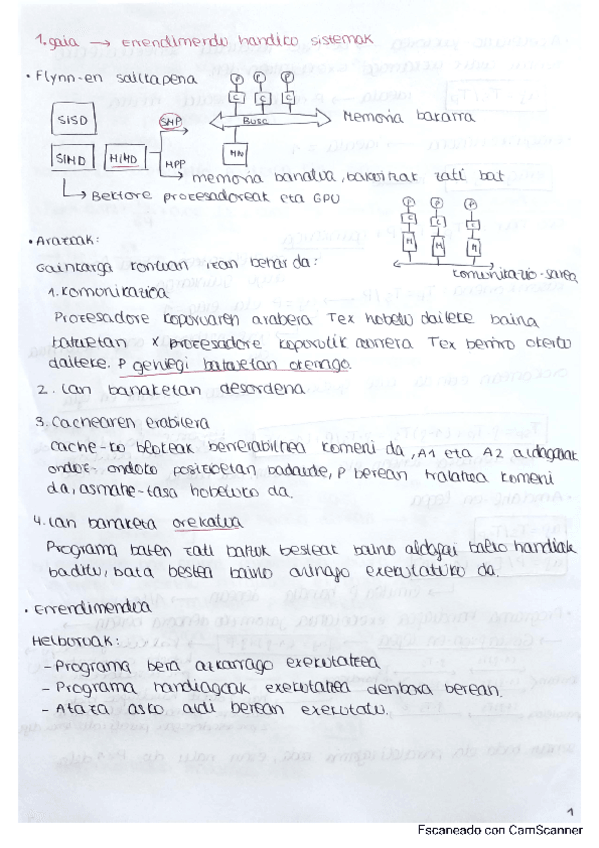 1. gaia → Errendimendu handiko sistemak
• Flynn-en sailkapena
P P P
C C C
SISD
SMP
Busa
Memoria bakarra
SIMD
MIMD
MM
MPP
memoria banatua, bakoitzak zati bat
Bektore prozesadoreak eta GPU
P P P
C C C
M M M
komunikazio-sarea
• Arazoak:
Gainkarga kontuan izan behar da:
1. Komunikazioa
Prozesadore kopuruaren arabera Tex hobetu daiteke baina
batzuetan x prozesadore kopurutik aurrera Tex berriro okertu
daiteke. P gehiegi batzuetan okerrago.
2. Lan banaketan desordena
3. Cachearen erabilera
Cache-ko blokeak berrerabiltzea komeni da, A1 eta A2 aldagaiak
ondoz-ondoko posizioetan badaude, P berean tratatzea komeni
da, asmatze-tasa hobetuko da.
4. Lan banaketa orekatua
Programa baten zati batzuk besteak baino aldagai balio handiak
baditu, bata bestea baino arinago exekutatuko da.
• Errendimendua
Helburuak:
- Programa bera azkarrago exekutatzea
- Programa handiagoak exekutatzea denbora berean.
- Ataza asko aldi berean exekutatu.
1
Escaneado con CamScanner